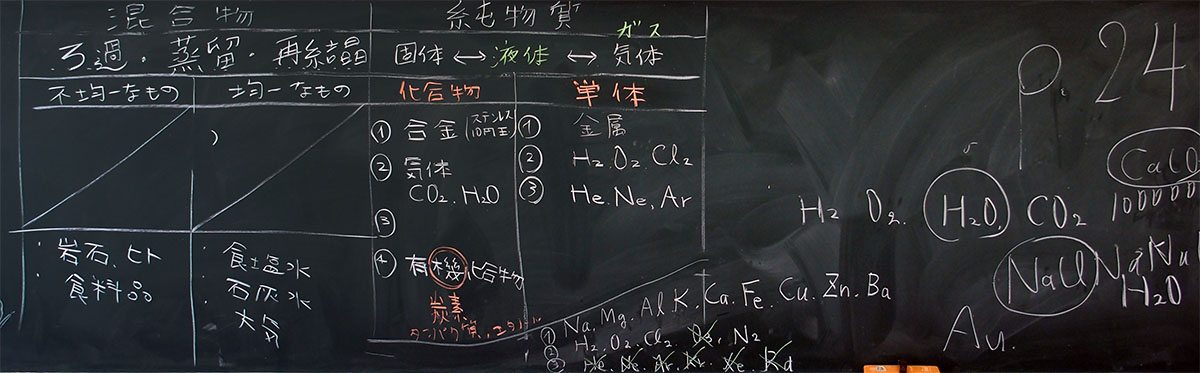 混合物 純物質
ろ過・蒸留・再結晶 固体 ↔ 液体 ↔ 気体 ガス
不均一なもの 均一なもの 化合物 単体
① 合金(ステンレス 10円玉) ① 金属
② 気体 ② H2.O2.Cl2
CO2.H2O ③ He.Ne.Ar
③
④ 有機化合物
炭素
タンパク質
・岩石.ヒト
・食料品
・食塩水
・石灰水
・大気
① Na.Mg.Al.K.Ca.Fe.Cu.Zn.Ba
② H2.O2.Cl2. N2
③ He.Ne.Ar.Kr.Xe.Rd
P.24
H2 O2. H2O. CO2
CaCO
100000
NaCl
H2O
Au.